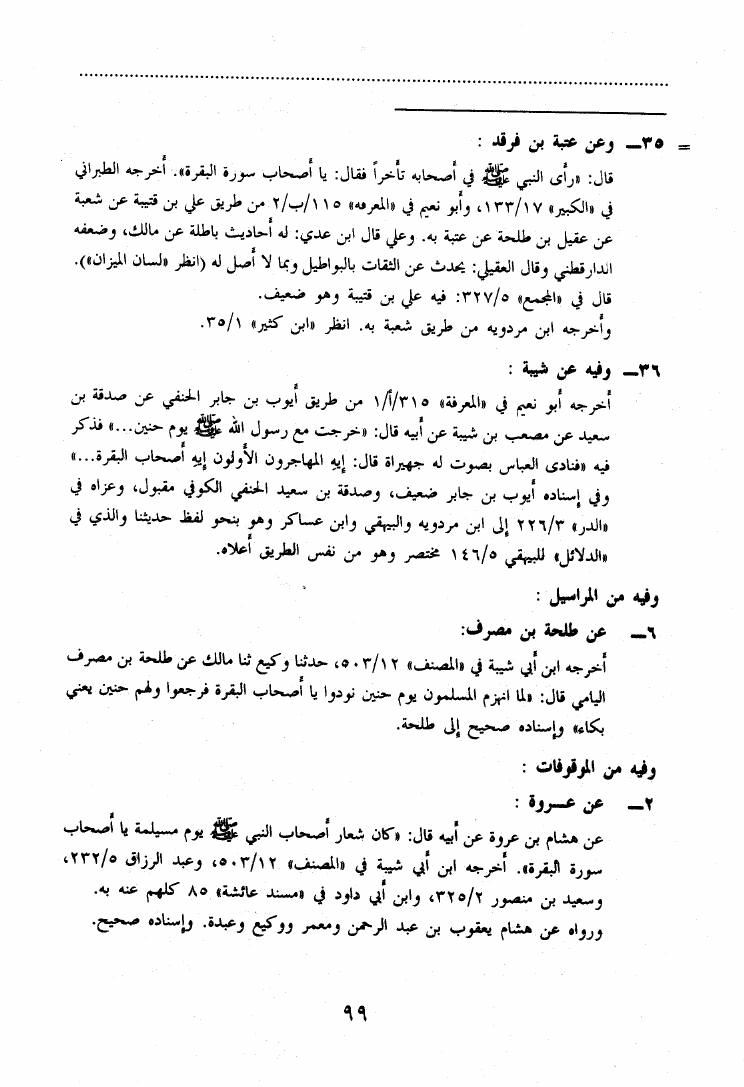 = ٣٥ــ وعن عتبة بن فرقد :
قال: «رأى النبي ﷺ في أصحابه تأخراً فقال: يا أصحاب سورة البقرة». أخرجه الطبراني
في «الكبير» ١٣٣/١٧، وأبو نعيم في «المعرفه» ١١٥/ب/٢ من طريق علي بن قتيبة عن شعبة
عن عقيل بن طلحة عن عتبة به. وعلي قال ابن عدي: له أحاديث باطلة عن مالك، وضعفه
الدارقطني وقال العقيلي: يحدث عن الثقات بالبواطيل وبما لا أصل له (انظر «لسان الميزان»).
قال في «المجمع» ٣٢٧/٥: فيه علي بن قتيبة وهو ضعيف.
وأخرجه ابن مردويه من طريق شعبة به. انظر «ابن كثير» ٣٥/١.
٣٦ــ وفيه عن شيبة :
أخرجه أبو نعيم في «المعرفة» ٣١٥/أ/١ من طريق أيوب بن جابر الحنفي عن صدقة بن
سعيد عن مصعب بن شيبة عن أبيه قال: «خرجت مع رسول الله ﷺ يوم حنين...» فذكر
فيه «فنادى العباس بصوت له جهيراة قال: إيه المهاجرون الأولون إيه أصحاب البقرة...»
وفي إسناده أيوب بن جابر ضعيف، وصدقة بن سعيد الحنفي الكوفي مقبول، وعزاه في
«الدر» ٢٢٦/٣ إلى ابن مردويه والبيهقي وابن عساكر وهو بنحو لفظ حديثنا والذي في
«الدلائل» للبيهقي ١٤٦/٥ مختصر وهو من نفس الطريق أعلاه.
وفيه من المراسيل :
٦ــ عن طلحة بن مصرف:
أخرجه ابن أبي شيبة في «المصنف» ٥٠٣/١٢، حدثنا وكيع ثنا مالك عن طلحة بن مصرف
اليامي قال: «لما انهزم المسلمون يوم حنين نودوا يا أصحاب البقرة فرجعوا ولهم حنين يعني
بكاء» وإسناده صحيح إلى طلحة.
وفيه من الموقوفات :
٢ــ عن عـروة :
عن هشام بن عروة عن أبيه قال: «كان شعار أصحاب النبي ﷺ يوم مسيلمة يا أصحاب
سورة البقرة». أخرجه ابن أبي شيبة في «المصنف» ٥٠٣/١٢، وعبد الرزاق ٢٣٢/٥،
وسعيد بن منصور ٣٢٥/٢، وابن أبي داود في «مسند عائشة» ٨٥ كلهم عنه به.
ورواه عن هشام يعقوب بن عبد الرحمن ومعمر ووكيع وعبدة. وإسناده صحيح.
٩٩